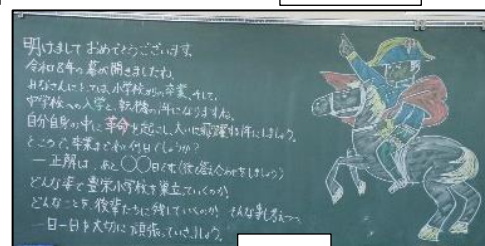 明けまして おめでとうございます。
令和8年の幕が開きましたね。
みなさんにとっては、小学校からの卒業、そして、
中学校への入学と、転機の年になりますね。
自分自身の中に革命を起こし、大いに飛躍する年にしましょう。
ところで、卒業まであと何日でしょうか?
―正解は、あと○○日です(後で答え合わせをしましょう)
どんな姿で豊栄小学校を巣立っていくのか、
どんなことを後輩たちに残していくのか、そんな事を考えつつ、
一日一日を大切に頑張っていきましょう。